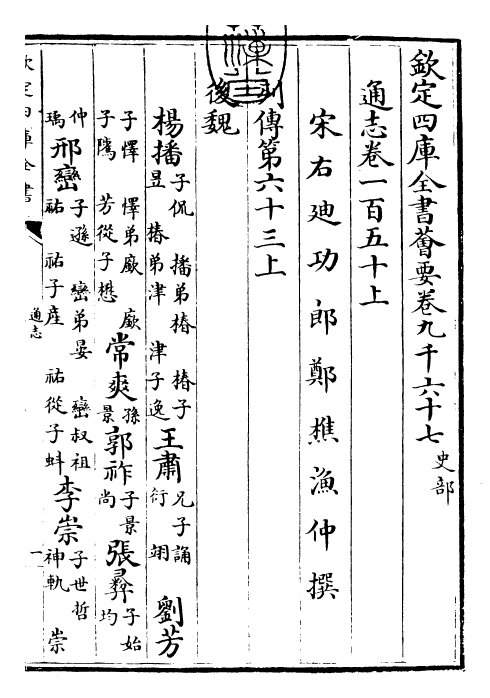 欽定四庫全書薈要卷九千六十七 史部
通志卷一百五十上
宋右廸功郎鄭樵漁仲撰
列傳第六十三上
後魏
楊播 子侃 播弟椿 椿子昱 椿弟津 津子逸 王肅 兄子誦 衍 翊 劉芳
子懌 懌弟廞 廞子隲 芳從子懋 常爽 孫景 郭祚 子景尚 張彞 子始均
仲瑀 邢巒 子遜 巒弟晏 巒叔祖祐 祐子產 祐從子蚪 李崇 子世哲 神軌 崇
欽定四庫全書
通志
一